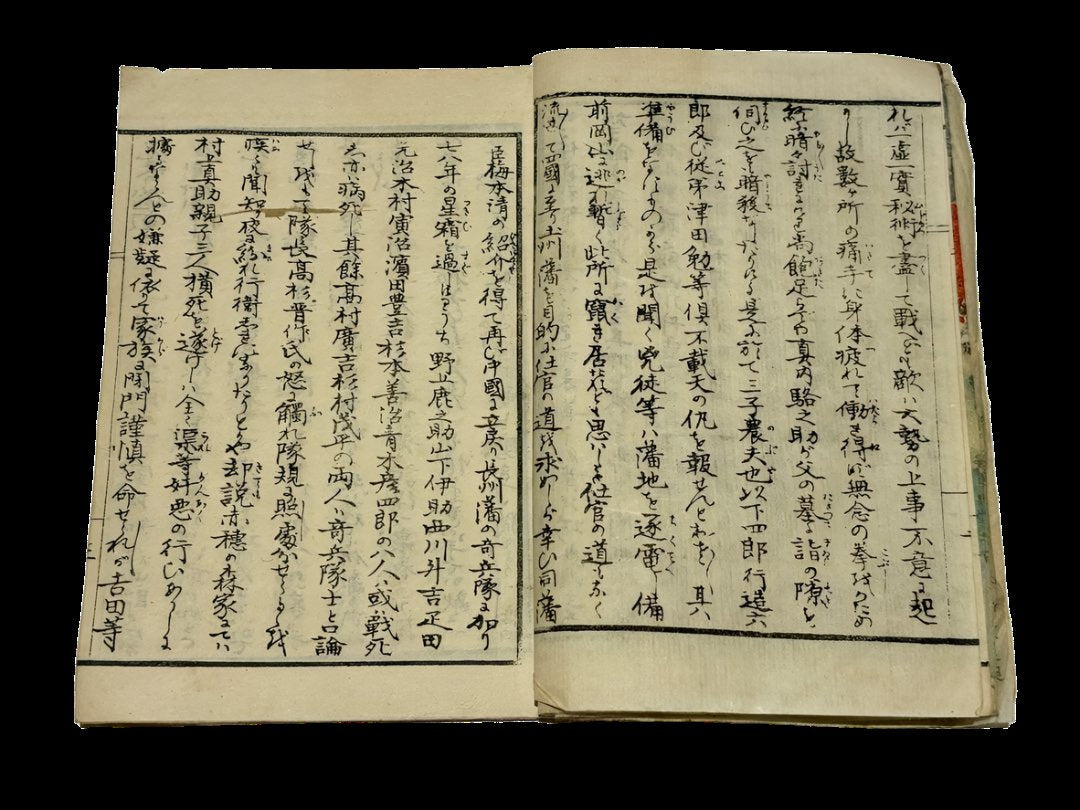 れバ虚實秘術を盡して戰へども敵ハ大勢の上事不意に起
りし故数ヶ所の痛手に身体疲れて働き得ず無念の拳をかため
終に暗々討れける尚飽足らでや真内駱之助が父の墓詣の隙を
伺ひ之を暗殺なしたりける是に於て三子農夫也以下四郎行遠六
郎及び従弟津田勉等倶不戴天の仇を報せんとわを 其
準備をなすものから是を聞く兇徒等ハ藩地を逐電し備
前岡山に逃れ暫く此所に竄き居たれども思ハしき仕官の道もなく
流れて四國に至り土州藩を目的に仕官の道を求めしが幸ひ同藩
臣梅本清の紹介を得て再び中國に立戻り長州藩の奇兵隊に加り
七八年の星霜を過しける うち 野上鹿之助山下伊助西川升吉疋田
元治木村寅治濱田豊吉杉本善治青木彦四郎の八人ハ或戦死
し亦ハ病死し其餘高村廣吉杉村茂平の両人ハ奇兵隊士と口論
せしを 隊長高杉晋作氏の怒に觸れ隊規に照處かせらるを
疾くも聞知り夜に紛れ行衛 なりたりとや却説赤穂の森家にてハ
村上真助親子三人横死を遂げしハ全く渠等奸悪の行ひありしに
との嫌疑に依りて家族に閉門謹慎を命せられが吉田等